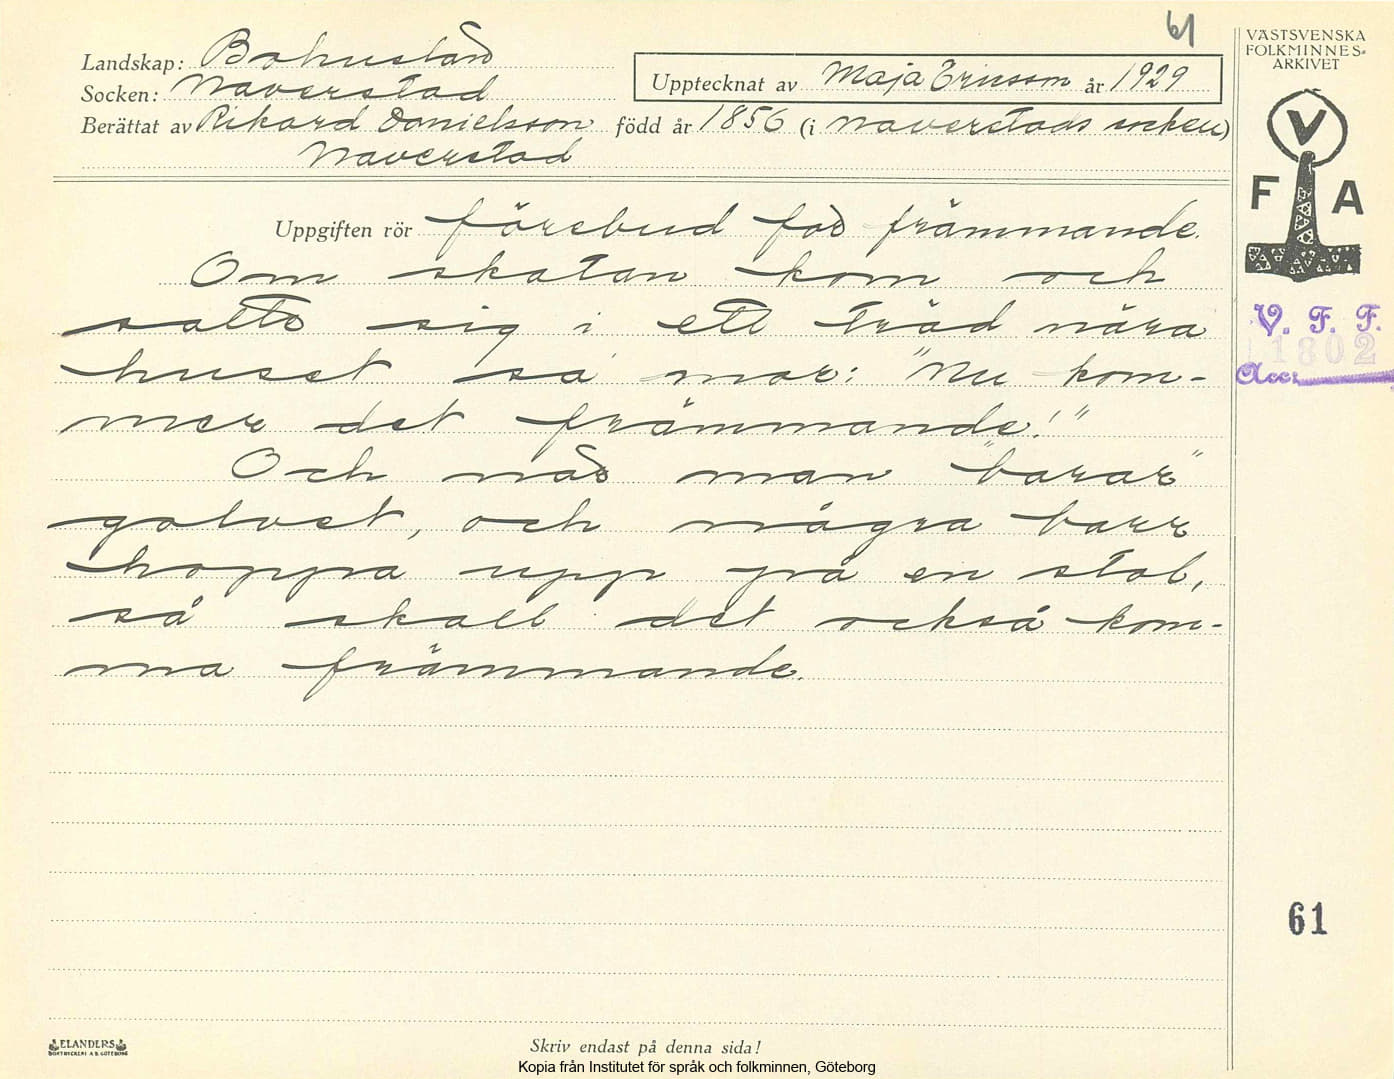 61
Landskap: Bohuslän
Socken: Naverstad
Upptecknat av Maja Ericsson år 1929
Berättat av Rikard Danielsson född år 1856 (i Naverstads socken)
Naverstad
VÄSTSVENSKA
FOLKMINNES-
ARKIVET
V
F A
V. F. F.
1802
Acc.
Uppgiften rör förebud for främmande.
Om skatan kom och
satte sig i ett träd nära
huset sa mor: "Nu kom-
mer det främmande!"
Och när man "barar"
golvet, och några barr
hoppa upp på en stol,
så skall det också kom-
ma främmande.
61
ELANDERS
BOKTRYCKERI A.B. GÖTEBORG
Skriv endast på denna sida!
Kopia från Institutet för språk och folkminnen, Göteborg